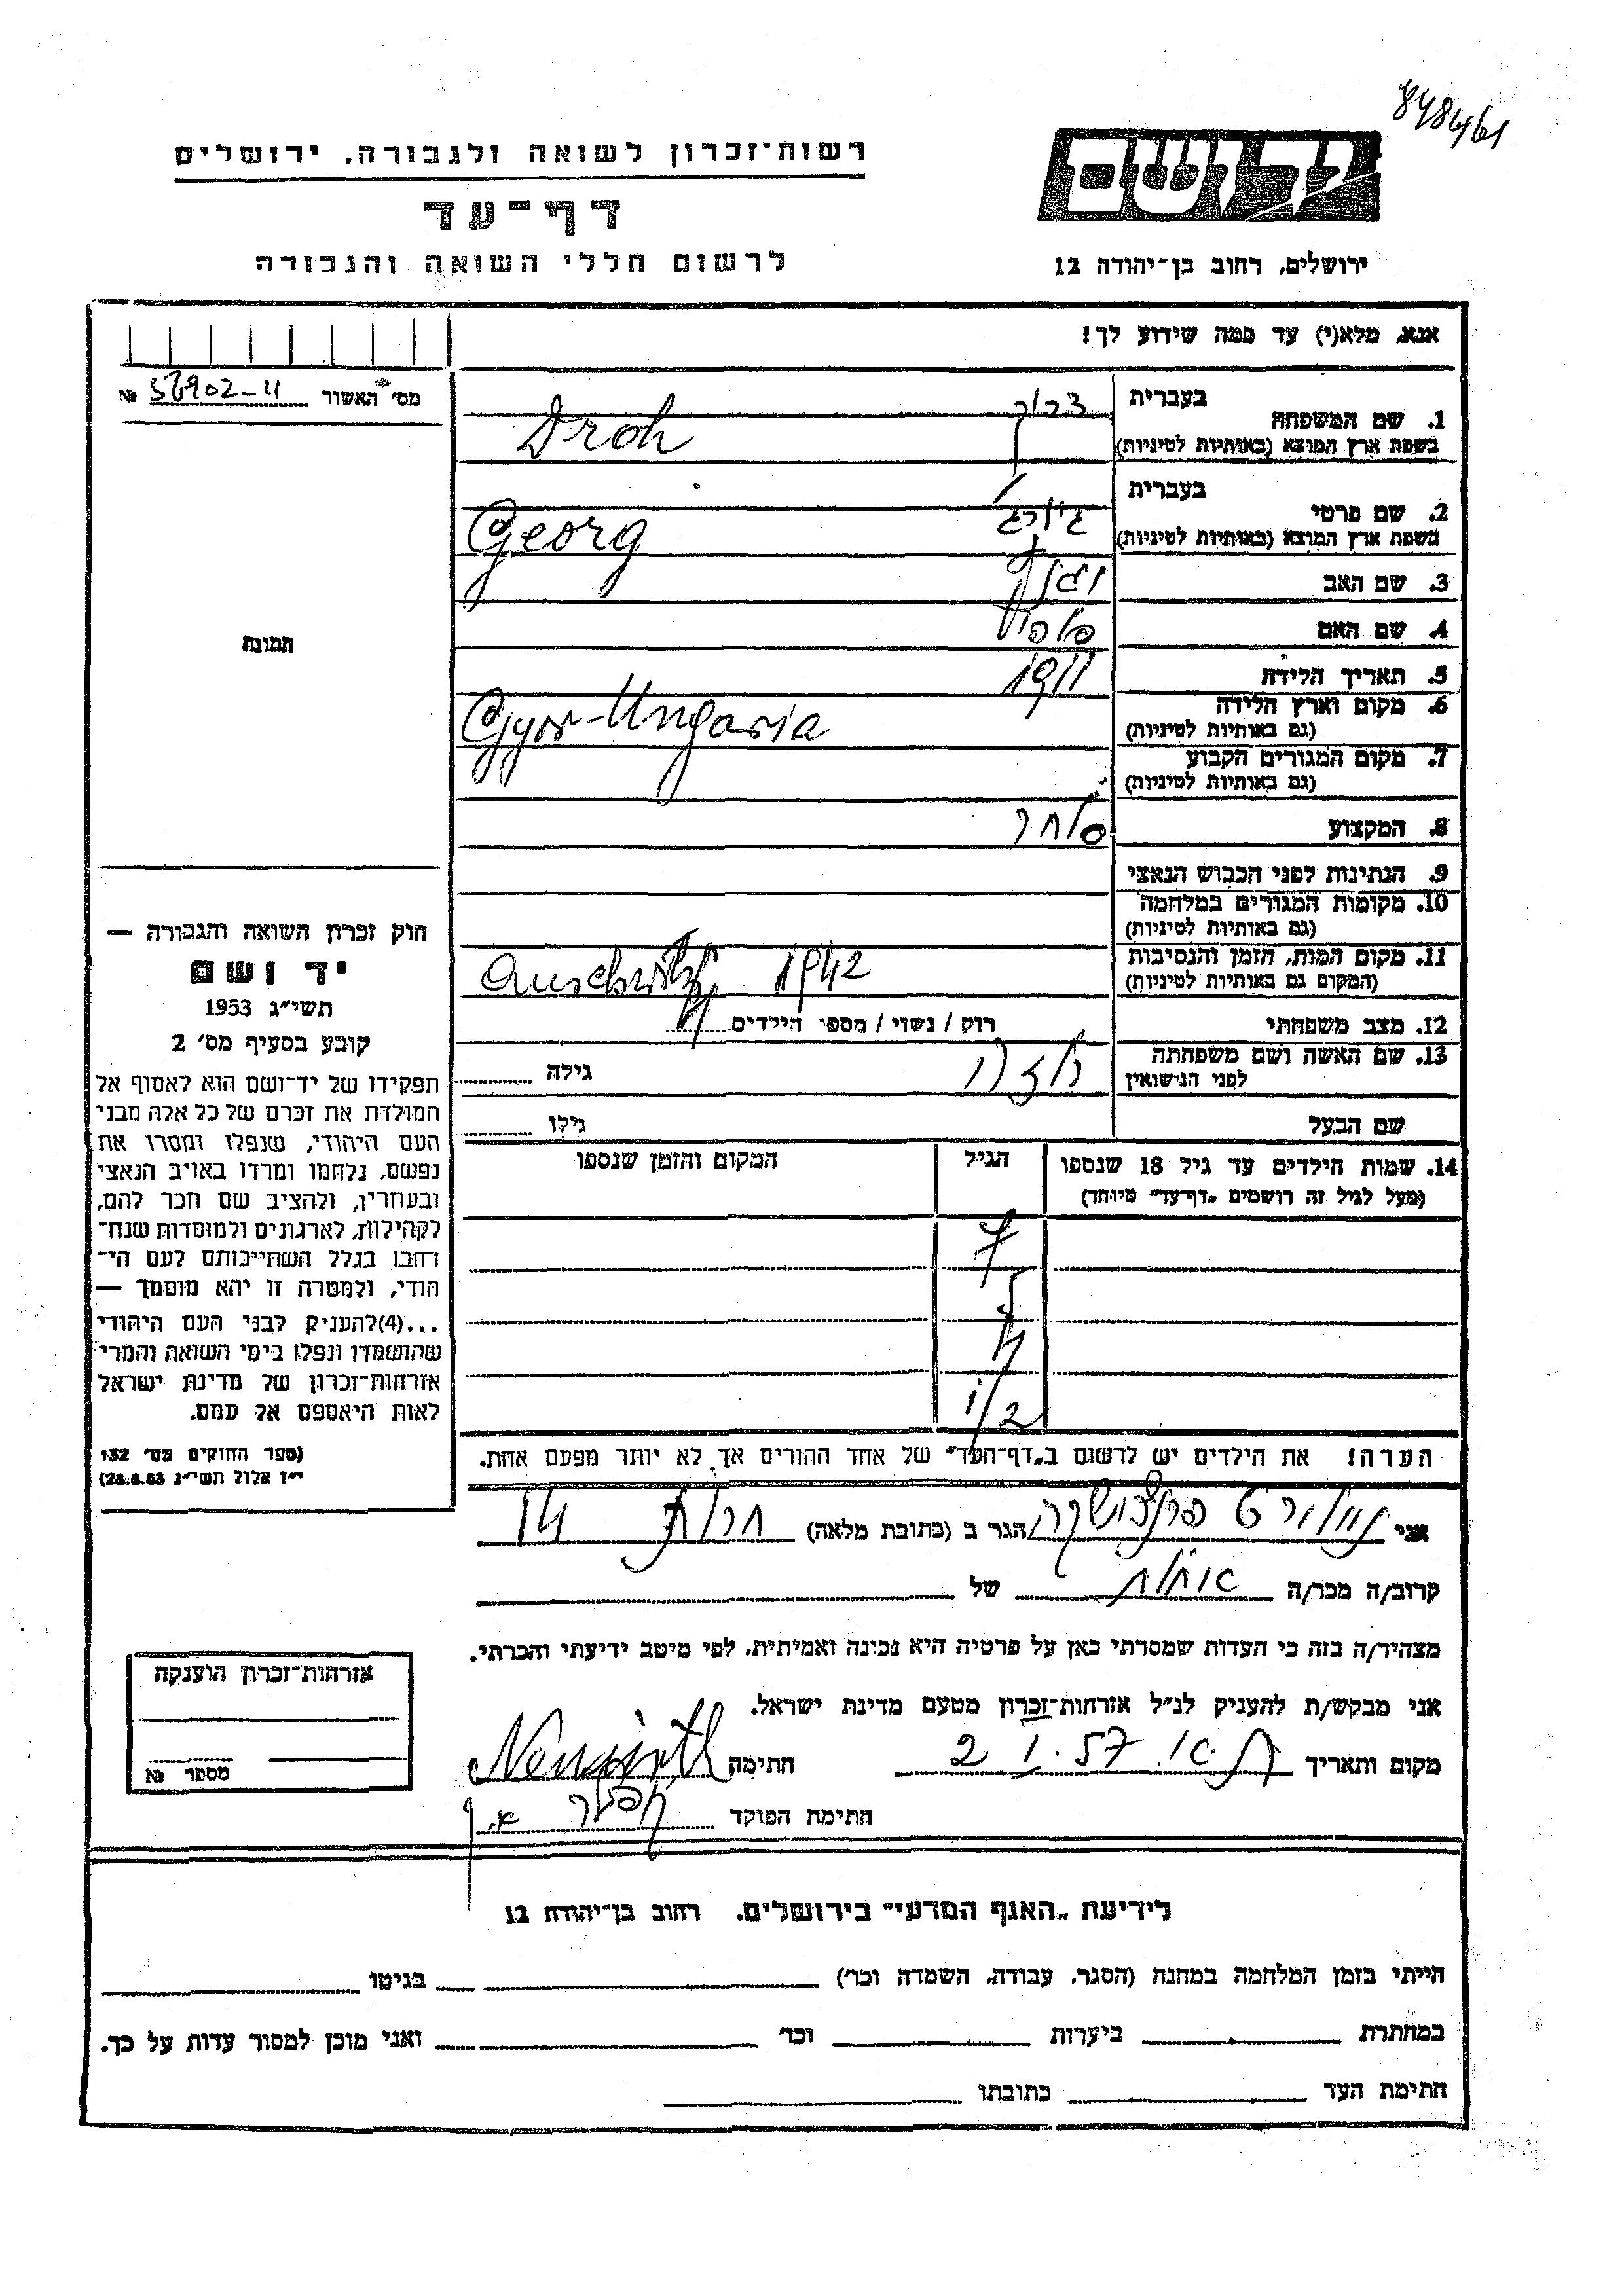 848461
יד ושם
רשות־זכרון לשואה ולגבורה, ירושלים
דף־עד
לרשום חללי השואה והגבורה
ירושלים, רחוב בן־יהודה 12
אנא, מלא(י) עד כמה שידוע לך!
מס׳ האשור № 56902-11
תמונה
1. שם המשפחה
בעברית
בשפת ארץ המוצא (באותיות לטיניות)
Droh
2. שם פרטי
בעברית
בשפת ארץ המוצא (באותיות לטיניות)
Georg
3. שם האב
4. שם האם
5. תאריך הלידה 1911
6. מקום וארץ הלידה
(גם באותיות לטיניות)
Gyor-Ungaria
7. מקום המגורים הקבוע
(גם באותיות לטיניות)
8. המקצוע סוחר
9. הנתינות לפני הכבוש הנאצי
10. מקומות המגורים במלחמה
(גם באותיות לטיניות)
11. מקום המות, הזמן והנסיבות
(המקום גם באותיות לטיניות)
Auschwitz 1942
12. מצב משפחתי רוק / נשוי / מספר הילדים 4
13. שם האשה ושם משפחתה
לפני הנישואין
גילה
שם הבעל גילו
14. שמות הילדים עד גיל 18 שנספו
(מעל לגיל זה רושמים „דף־עד״ מיוחד)
הגיל
המקום והזמן שנספו
7
5
4
1/2
הערה! את הילדים יש לרשום ב„דף־העד״ של אחד ההורים אך לא יותר מפעם אחת.
חוק זכרון השואה והגבורה —
יד ושם
תשי״ג 1953
קובע בסעיף מס׳ 2
תפקידו של יד־ושם הוא לאסוף אל
המולדת את זכרם של כל אלה מבני
העם היהודי, שנפלו ומסרו את
נפשם, נלחמו ומרדו באויב הנאצי
ובעוזריו, ולהציב שם וזכר להם,
לקהילות, לארגונים ולמוסדות שנח־
רבו בגלל השתייכותם לעם הי־
הודי, ולמטרה זו יהא מוסמך —
...(4)להעניק לבני העם היהודי
שהושמדו ונפלו בימי השואה והמרי
אזרחות־זכרון של מדינת ישראל
לאות היאספם אל עמם.
(ספר החוקים מס׳ 132
י״ז אלול תשי״ג 28.8.53)
אני הגר ב (כתובת מלאה)
קרוב/ה מכר/ה אחות של
מצהיר/ה בזה כי העדות שמסרתי כאן על פרטיה היא נכונה ואמיתית, לפי מיטב ידיעתי והכרתי.
אני מבקש/ת להעניק לנ״ל אזרחות־זכרון מטעם מדינת ישראל.
מקום ותאריך 2 I. 57 חתימה
חתימת הפוקד
אזרחות־זכרון הוענקה
מספר №
לידיעת „האגף המדעי״ בירושלים, רחוב בן־יהודה 12
הייתי בזמן המלחמה במחנה (הסגר, עבודה, השמדה וכו׳) בגיטו
במחתרת ביערות וכו׳ ואני מוכן למסור עדות על כך.
חתימת העד כתובתו